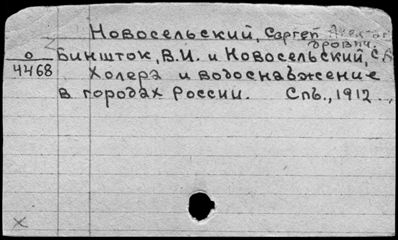 Новосельский, Сергей Александрович.
о
4468
Биншток, В.И. и Новосельский, С.А
Холера и водоснабжение
в городах России. Спб., 1912.
x